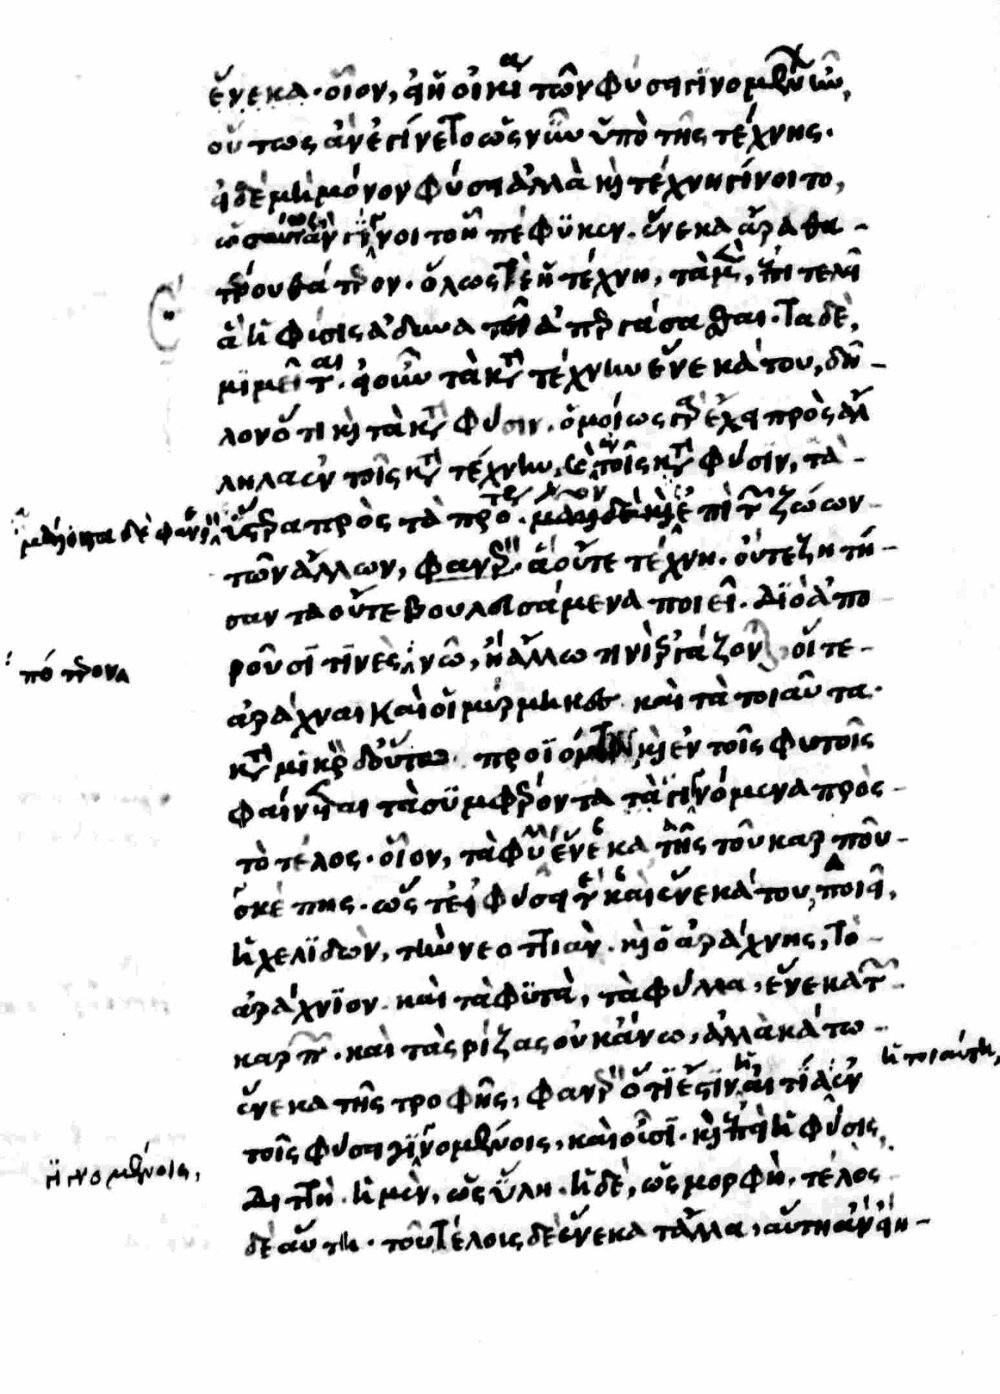 ἕνεκα· οἷον, εἰ ἡ οἰκία τῶν φύσει γινομένων ἦν,
οὕτως ἂν ἐγίνετο ὡς νῦν ὑπὸ τῆς τέχνης·
εἰ δὲ μὴ μόνον φύσει ἀλλὰ καὶ τέχνη γίνοιτο,
ὡσαύτως ἂν γίνοιτο ᾗ πέφυκεν. ἕνεκα ἄρα θα-
τέρου θάτερον· ὅλως τὲ ἡ τέχνη, τὰ μὲν, ἐπιτελεῖ
ἃ ἡ φύσις ἀδυνατεῖ ἀπεργάσασθαι· τὰ δὲ,
μιμεῖται· εἰ οὖν τὰ κατὰ τέχνην ἕνεκά του, δῆ-
λον ὅτι καὶ τὰ κατὰ φύσιν. ὁμοίως γὰρ ἔχει πρὸς ἄλ
ληλα ἐν τοῖς κατὰ τέχνην, καὶ ἐν τοῖς κατὰ φύσιν, τὰ
μάλιστα δὲ φανερὸν
ὕστερα πρὸς τὰ πρότερον. ἐπὶ τῶν ζώων
τῶν ἄλλων, φανερὸν. ἃ οὔτε τέχνη. οὔτε ζητή-
σαντα οὔτε βουλευσάμενα ποιεῖ. διὸ ἀπο
πότερον
ροῦσί τινὲς νῷ, ἢ ἄλλω τινὶ ἐργάζονται, οἵ τε
ἀράχναι καὶ οἱ μύρμηκες καὶ τὰ τοιαῦτα·
κατὰ μικρὸν δ' οὕτω προϊόντι καὶ ἐν τοῖς φυτοῖς
φαίνεται τὰ συμφέροντα γινόμενα πρὸς
τὸ τέλος· οἷον, τὰ φύλλα ἕνεκα τῆς τοῦ καρποῦ
σκέπης. ὥστ' εἰ φύσει τε καὶ ἕνεκά του, ποιεῖ,
ἡ χελιδὼν, τὴν νεοττιὰν. καὶ ὁ ἀράχνης, τὸ
ἀράχνιον καὶ τὰ φυτὰ, τὰ φύλλα, ἕνεκα τῶν
καρπῶν. καὶ τὰς ῥίζας οὐκ ἄνω, ἀλλὰ κάτω
ἡ τοιαύτη,
ἕνεκα τῆς τροφῆς, φανερὸν ὅτι ἐστὶν ἡ αἰτία ἐν
τοῖς φύσει γινομένοις, καὶ οὖσι. καὶ ἐπεὶ ἡ φύσις,
γινομένοις,
διττὴ. ἡ μὲν, ὡς ὕλη. ἡ δὲ, ὡς μορφὴ. τέλος
δὲ αὕτη. τοῦ τέλους δὲ ἕνεκα τἄλλα, αὕτη ἂν εἴη